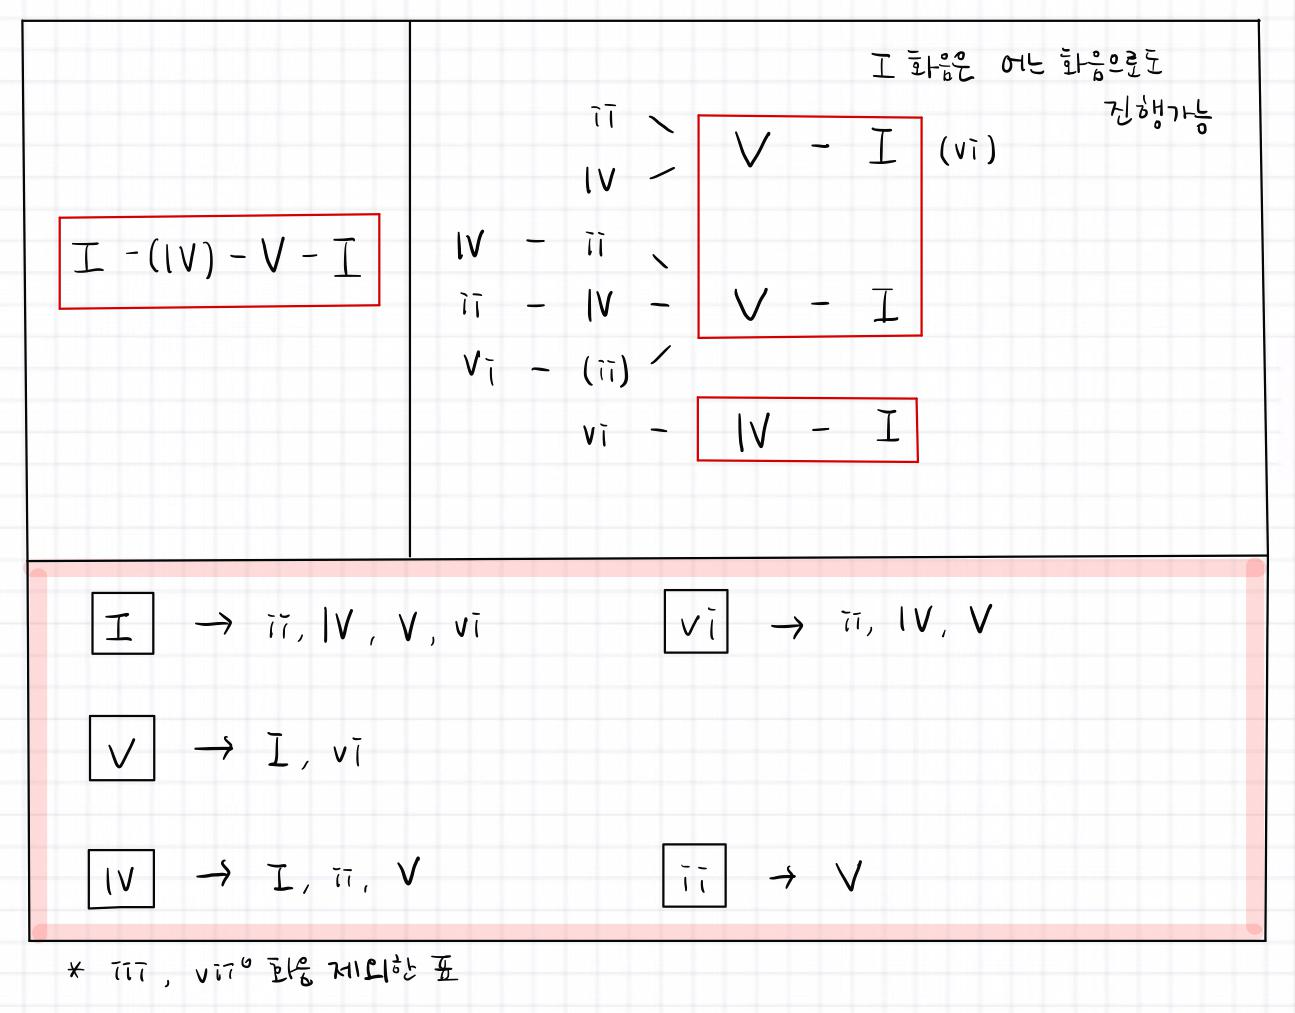 I - (IV) - V - I
I 화음은 어느 화음으로도
진행가능
ii
V - I (vi)
IV
IV - ii
ii - IV - V - I
vi - (ii)
vi - IV - I
I → ii, IV, V, vi
vi → ii, IV, V
V → I, vi
IV → I, ii, V
ii → V
* iii, vii° 화음 제외한 표